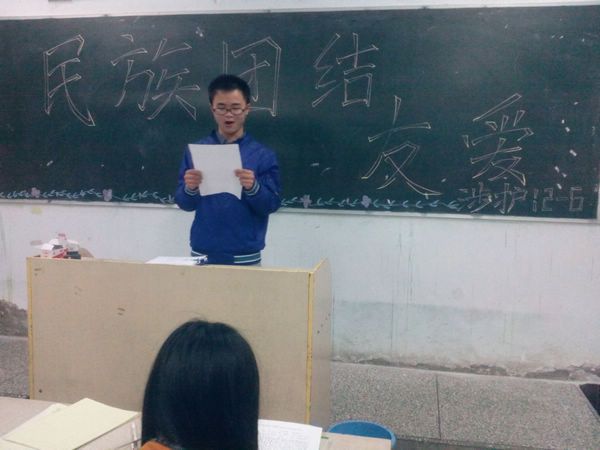 民族团结
友爱
涉护12-6